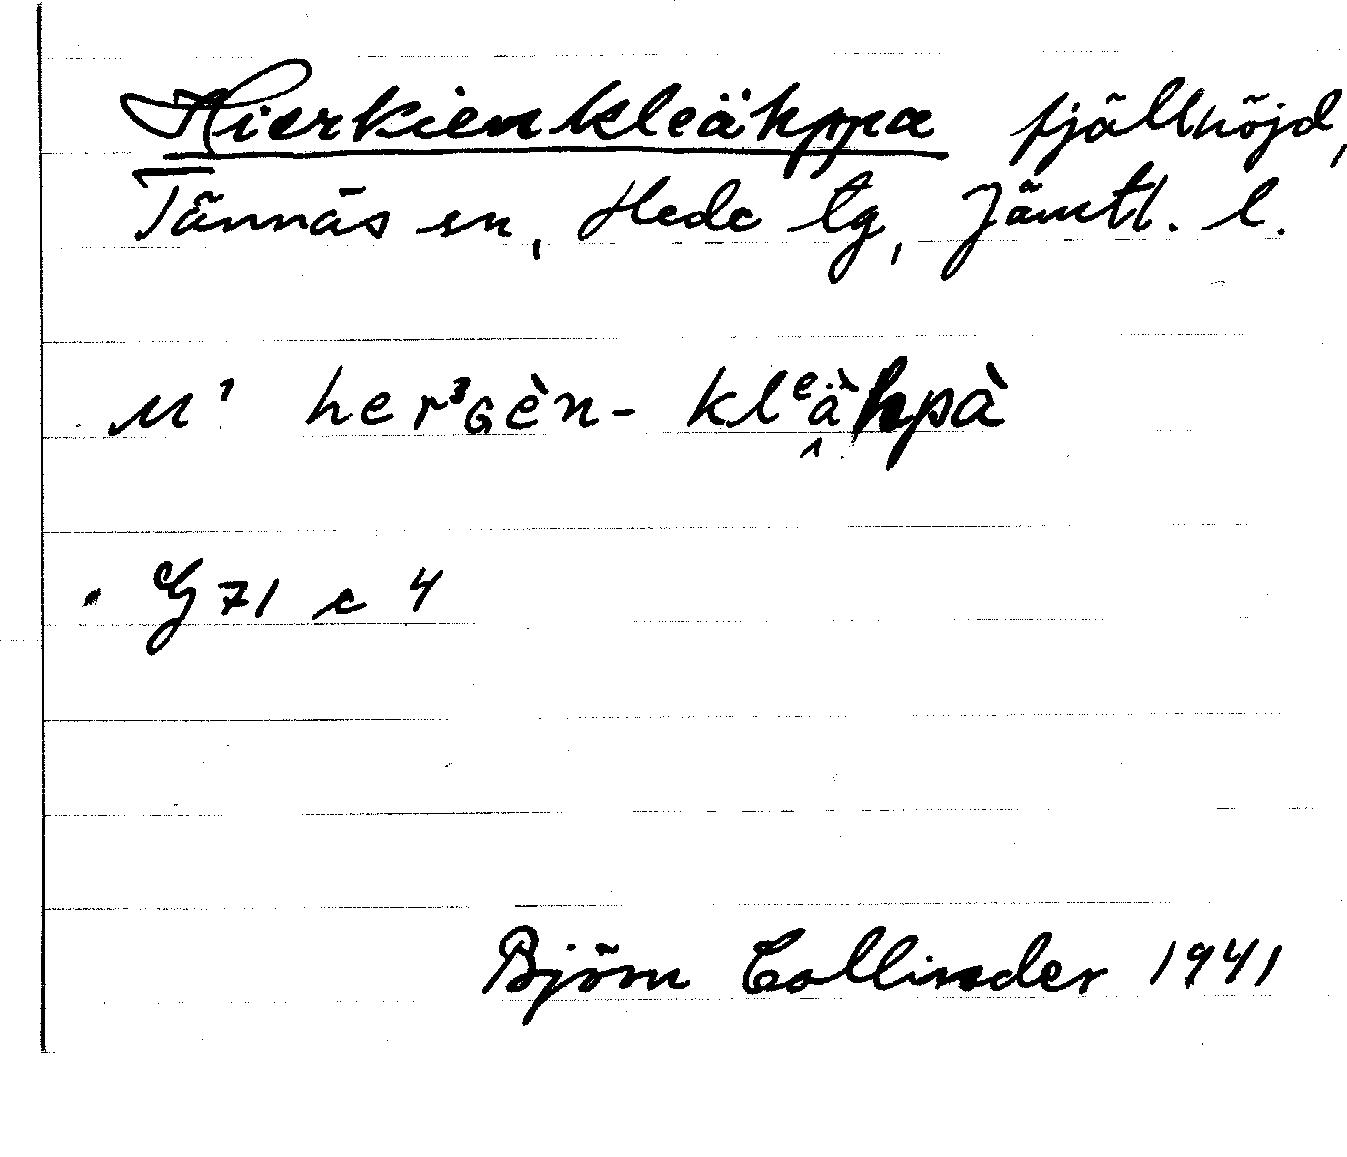 Hierkienkleähppa fjällhöjd,
Tännäs sn, Hede tg, Jämtl. l.
M¹ her³Gèn- klᵉä̀hpà
G 71 c 4
Björn Collinder 1941